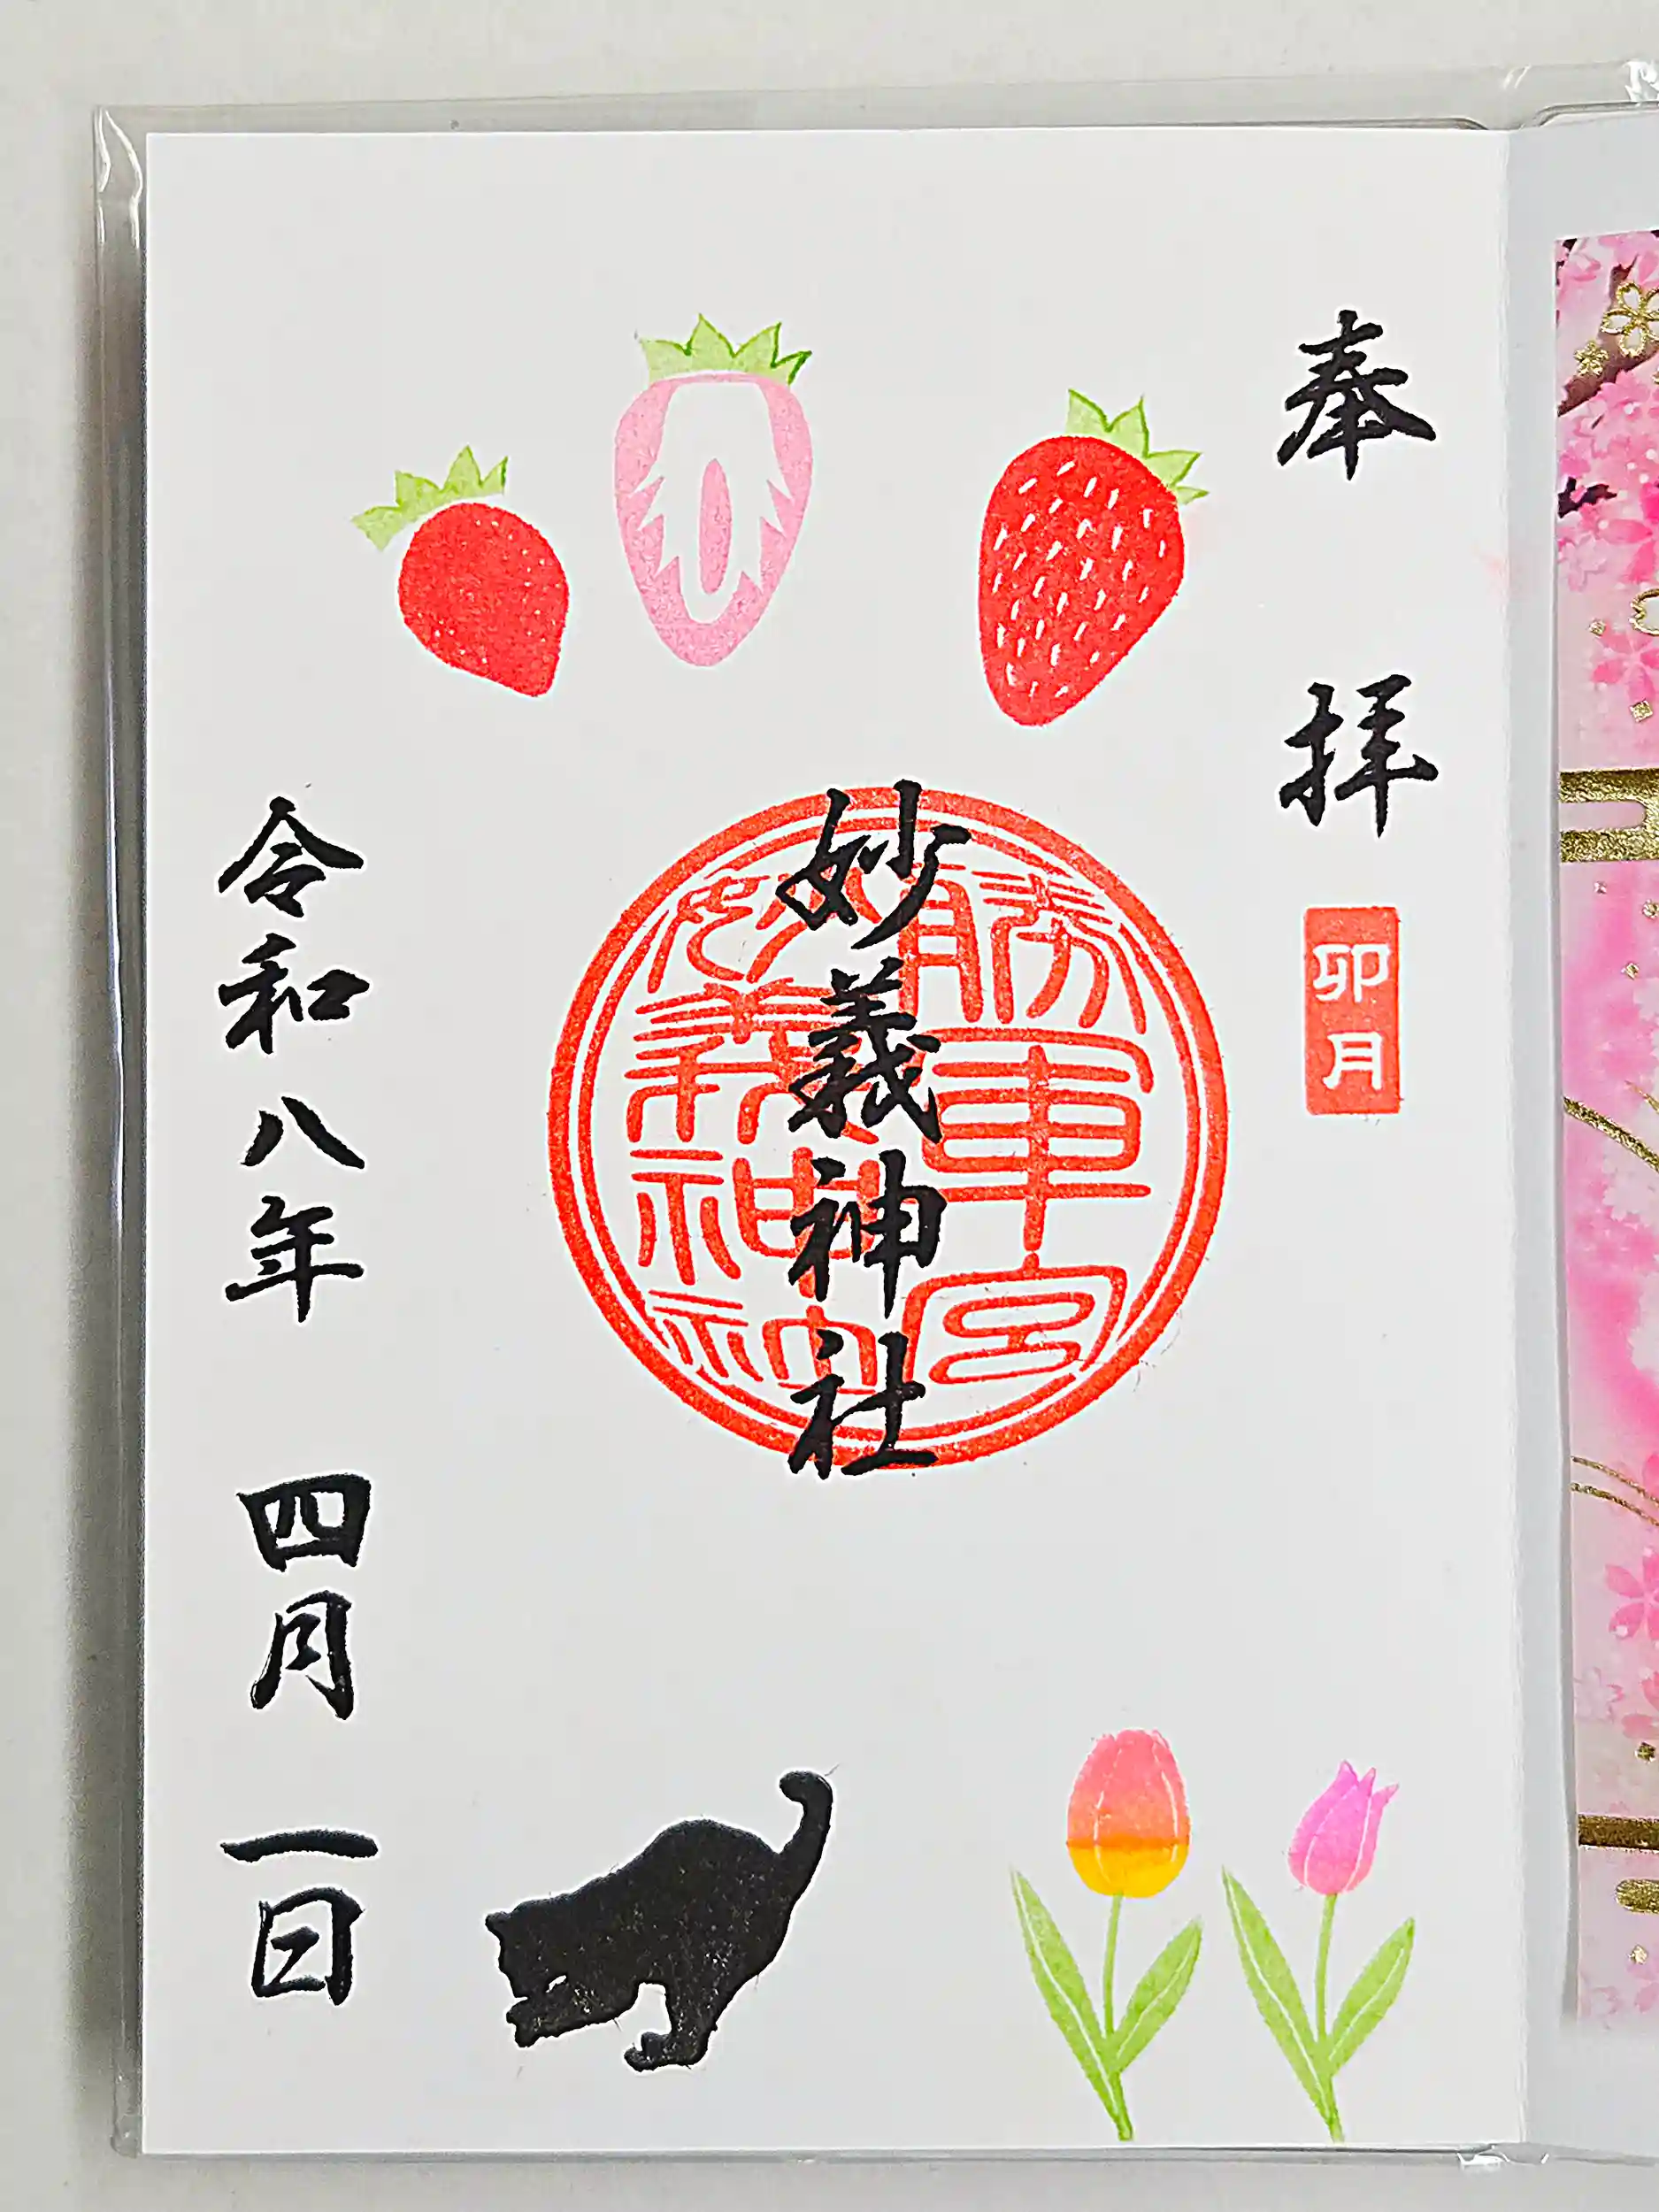 奉拝
卯月
妙義神社
勝軍宮
妙義神社
令和八年 四月 一日